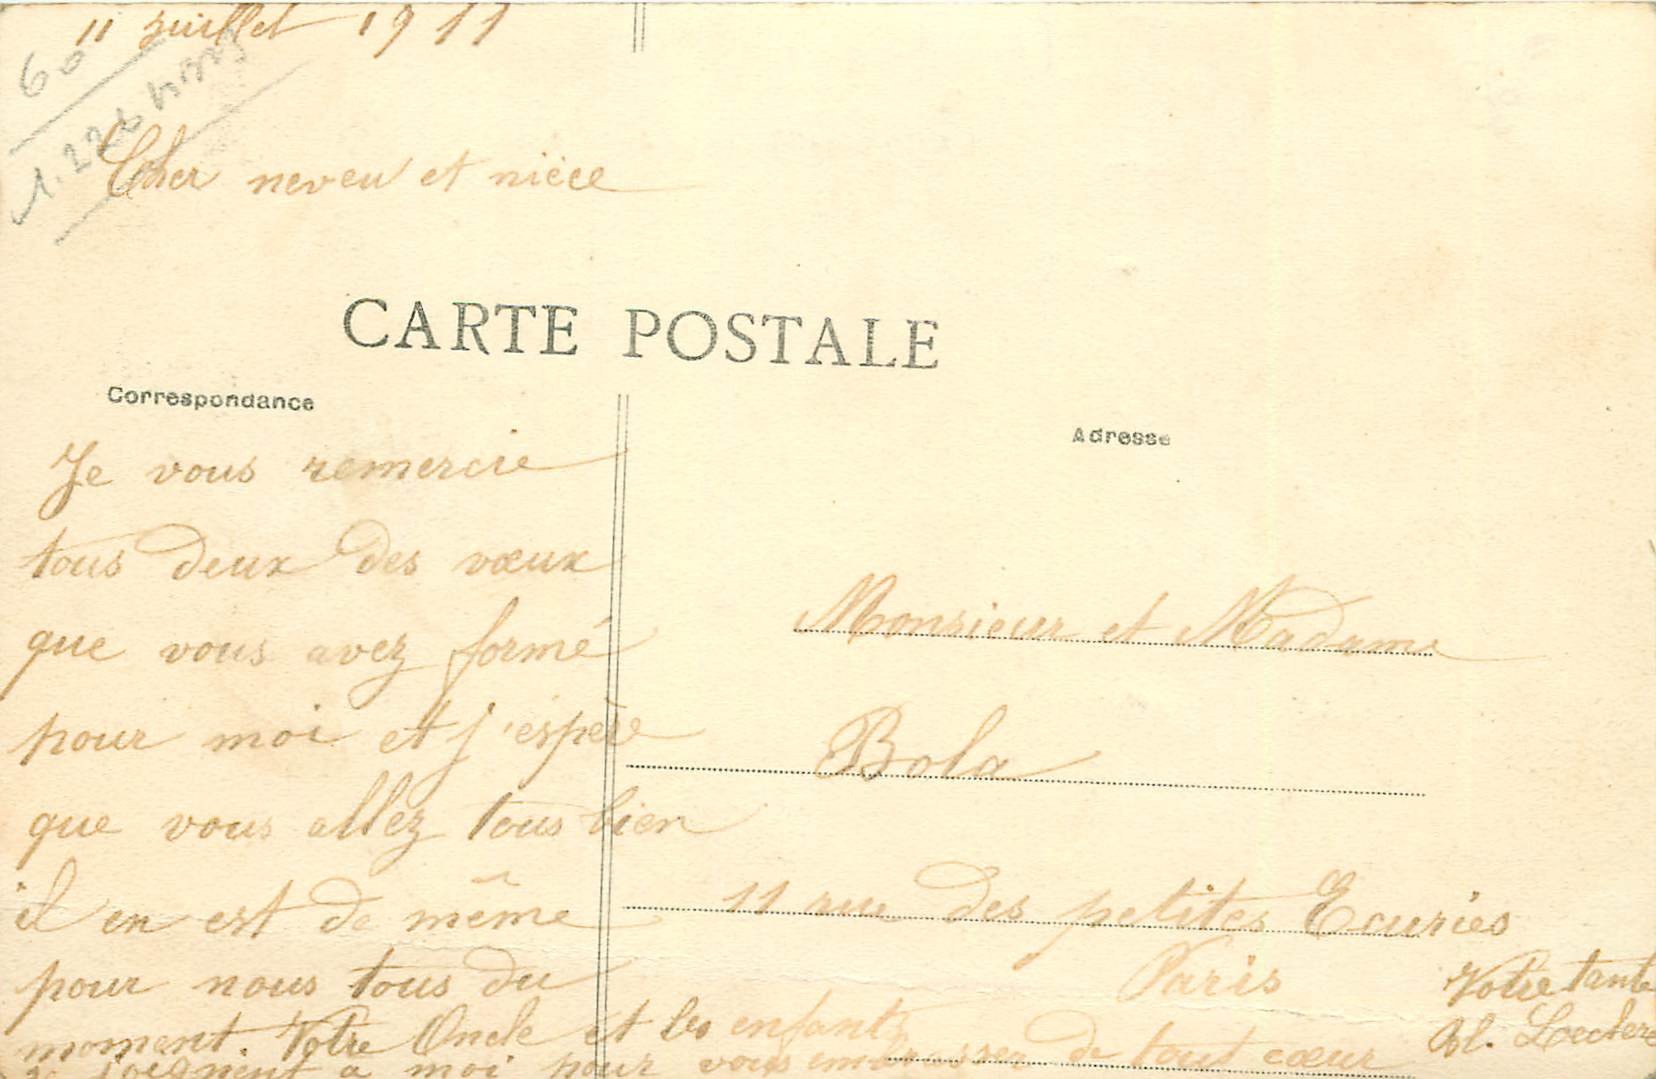 11 juillet 1911
60
Cher neveu et nièce
CARTE POSTALE
Correspondance
Adresse
Je vous remercie
tous deux des vœux
que vous avez formé
pour moi et j'espère
que vous allez tous bien
il en est de même
pour nous tous du
moment. Votre Oncle et les enfants
se joignent a moi pour vous embrasser de tout cœur
Votre tante
Bl.
Monsieur et Madame
Bola
11 rue des petites Ecuries
Paris